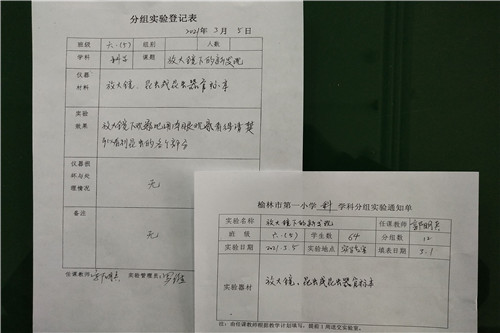 分组实验登记表
2021年 3月 5日
班级 六.(5) 组别 人数
学科 科学 课题 放大镜下的新发现
仪器材料 放大镜、昆虫或昆虫器官标本
实验效果 放大镜下观察地比肉眼观察看得清楚
可以看到昆虫的各个部分
仪器损坏与处理情况 无
备注 无.
任课教师: 实验管理员:
榆林市第一小学 科 学科分组实验通知单
实验名称 放大镜下的新发现 任课教师
班 级 六.(5) 学生数 64 分组数 12
实验日期 2021.3.5 实验地点 实验室 填表日期 3.1
实验器材 放大镜、昆虫或昆虫器官标本
注:由任课教师根据教学计划填写,提前1周送交实验室。